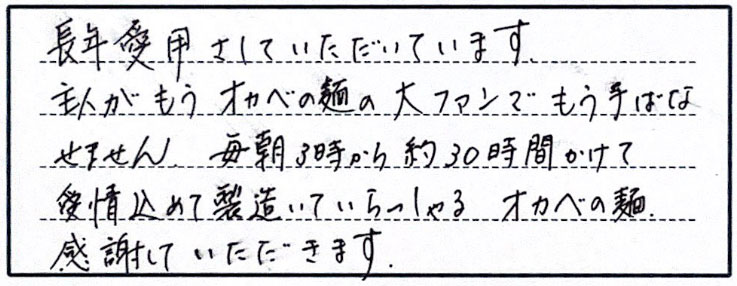 長年愛用さしていただいています.
主人がもう オカベの麺の大ファンでもう手ばな
せません. 毎朝3時から約30時間かけて
愛情込めて製造いていらっしゃる オカベの麺.
感謝していただきます.